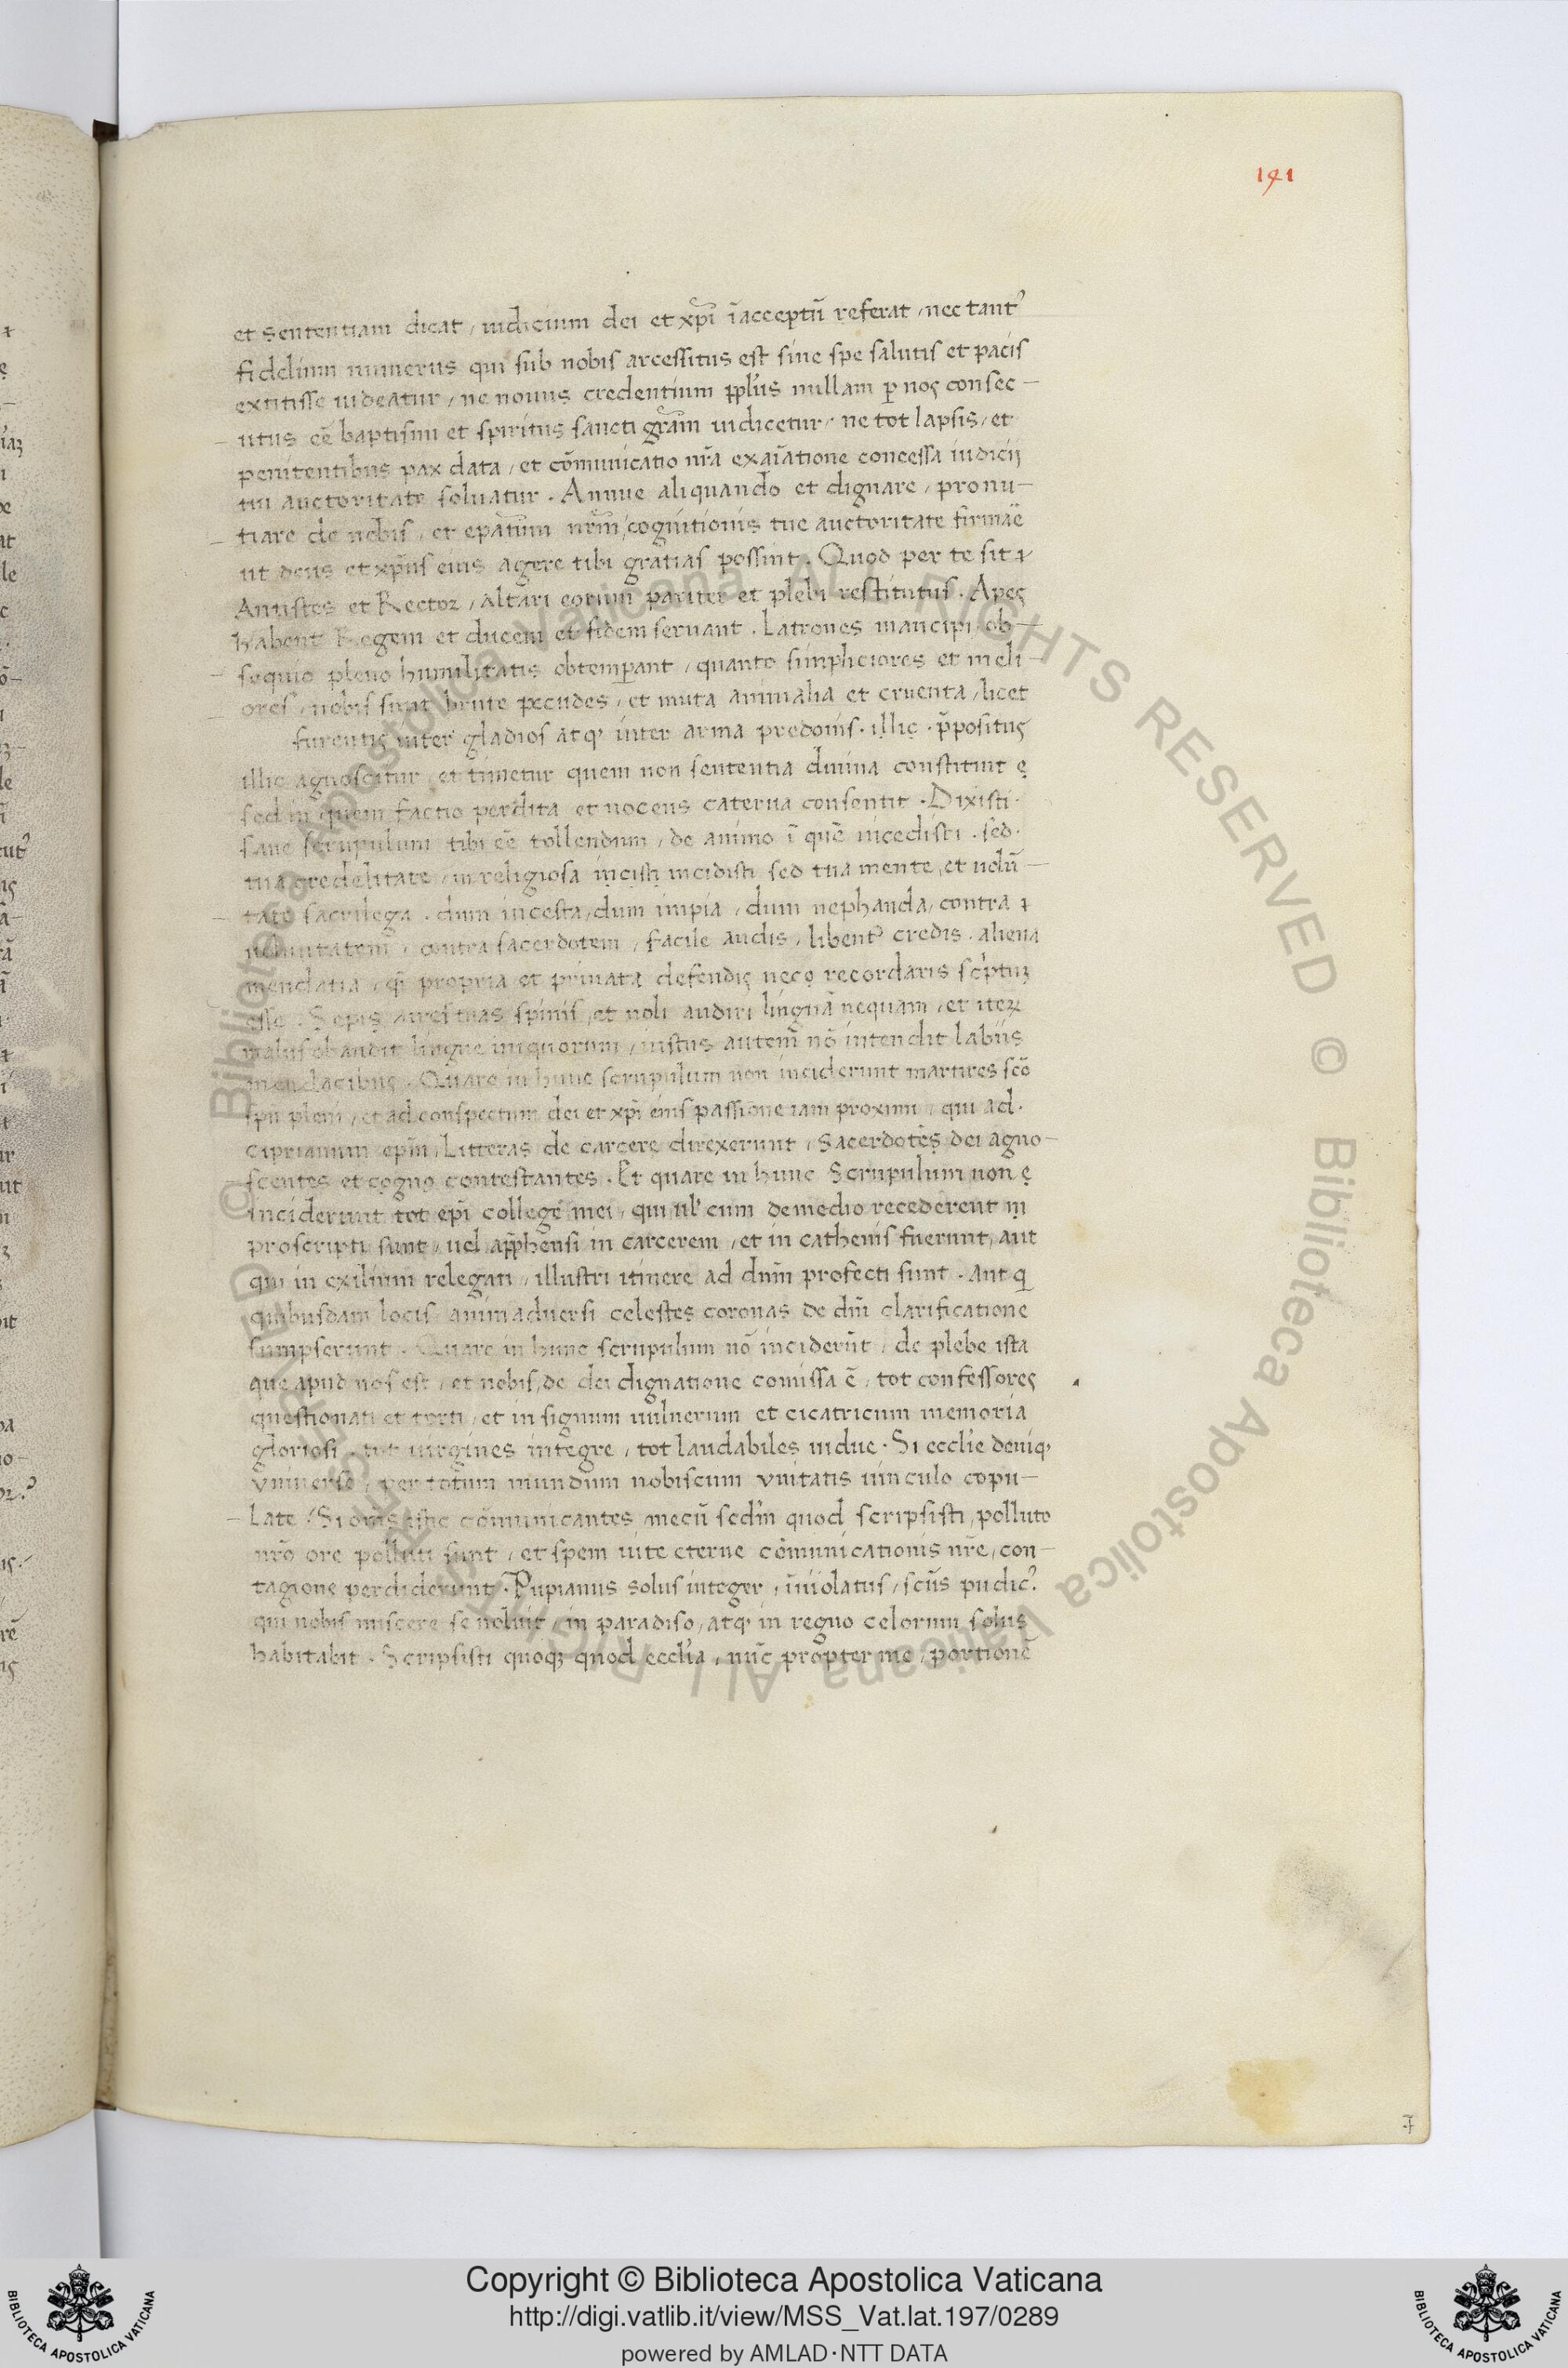 141
et sententiam dicat / iudicium dei et xp̄i īacceptū referat / nec tantꝰ
fidelium numerus qui sub nobis arcessitus est sine spe salutis et pacis
extitisse uideatur / ne nouus credentium ppl'us nullam ꝑ nos consec-
utus eē baptismi et spiritus sancti grām iudicetur / ne tot lapsis / et
penitentibus pax data / et cōmunicatio nr̄a exaīatione concessa iudicij
tui auctoritate soluatur . Annue aliquando et dignare / pronu-
tiare de nobis / et epātum nr̄m / cognitionis tue auctoritate firmāe
ut deus et xp̄us eius agere tibi gratias possint . Quod per te sit
Antistes et Rector / altari eorum pariter et plebi restitutus . Apes
habent Regem et ducem et fidem seruant . Latrones mancipi ob-
sequio pleno humilitatis obtemꝑant / quanto simpliciores et meli-
ores / nobis sunt brute pecudes / et muta animalia et cruenta / licet
furentis inter gladios atq' inter arma predonis . illic . p̄positus
illic agnoscitur / et timetur quem non sententia diuina constituit ę
sed in quem factio perdita et nocens caterua consentit . Dixisti .
sane scrupulum tibi eē tollendum / de animo ī quē incedisti . sed .
tua credelitate / inreligiosa incisti incidisti sed tua mente / et uolū-
tate sacrilega . dum incesta / dum impia / dum nephanda / contra
contra sacerdotem / facile audis / libentꝰ credis . aliena
mendatia / q̄ propria et priuata defendis necq recordaris sc'ptuȝ
esse . Sepis aures tuas spinis / et noli audiri linguā nequam / et iteꝝ
malus obaudit lingue iniquorum / iustus autem nō intendit labiis
mendacibus . Quare in hunc scrupulum non inciderunt martires scō
spū pleni / et ad conspectum dei et xp̄i eius passione iam proximi / qui ad .
ciprianum ep̄m / Litteras de carcere direxerunt / Sacerdotes dei agno-
scentes et cogno contestantes . Et quare in hunc Scrupulum non ę
inciderunt tot ep̄i college mei / qui ul' cum demedio recederent in
proscripti sunt / uel app̄hensi in carcerem / et in cathenis fuerunt / aut
qui in exilium relegati / illustri itinere ad dnm̄ profecti sunt . Aut q
quibusdam locis animaduersi celestes coronas de dn̄i clarificatione
sumpserunt . Quare in hunc scrupulum nō inciderūt / de plebe ista
que apud nos est / et nobis / de dei dignatione comissa ē / tot confessores
questionati et torti / et in signum uulnerum et cicatricum memoria
gloriosi . tot uirgines integre / tot laudabiles uidue . Si eccl'ie deniq'
vniuerse / per totum mundum nobiscum vnitatis uinculo copu-
late / Si om̄s cōmunicantes mecū sedm̄ quod scripsisti / polluto
nr̄o ore polluti sunt / et spem uite eterne cōmunicationis nr̄e / con-
tagione perdiderunt . Pupianus solus integer / īuiolatus / sc̄us pudicꝰ
qui nobis miscere se noluit / in paradiso / atq' in regno celorum solus
habitabit . Scripsisti quoqȝ quod eccl'ia / nūc propter me / portionē
Copyright © Biblioteca Apostolica Vaticana
http://digi.vatlib.it/view/MSS_Vat.lat.197/0289
powered by AMLAD·NTT DATA